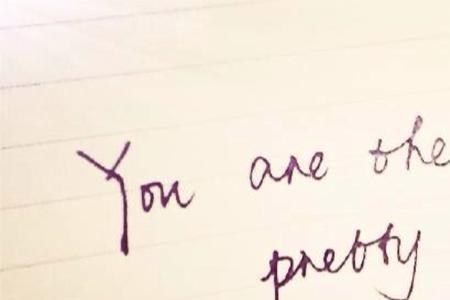 You are the
pretty